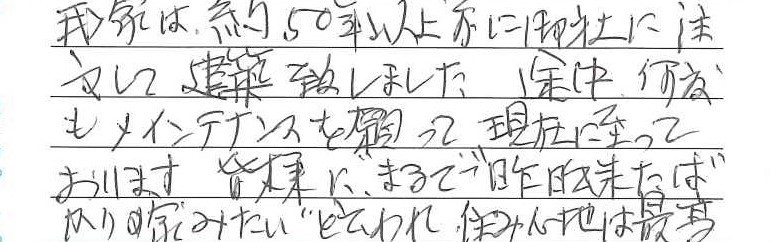 我家は、約50年以上前に御社に注
文して建築致しました 途中、何度
もメインテナンスを願って現在に至って
おります 皆様に、まるで"昨日出来たば
かりの家みたい"と云われ 住み心地は最高